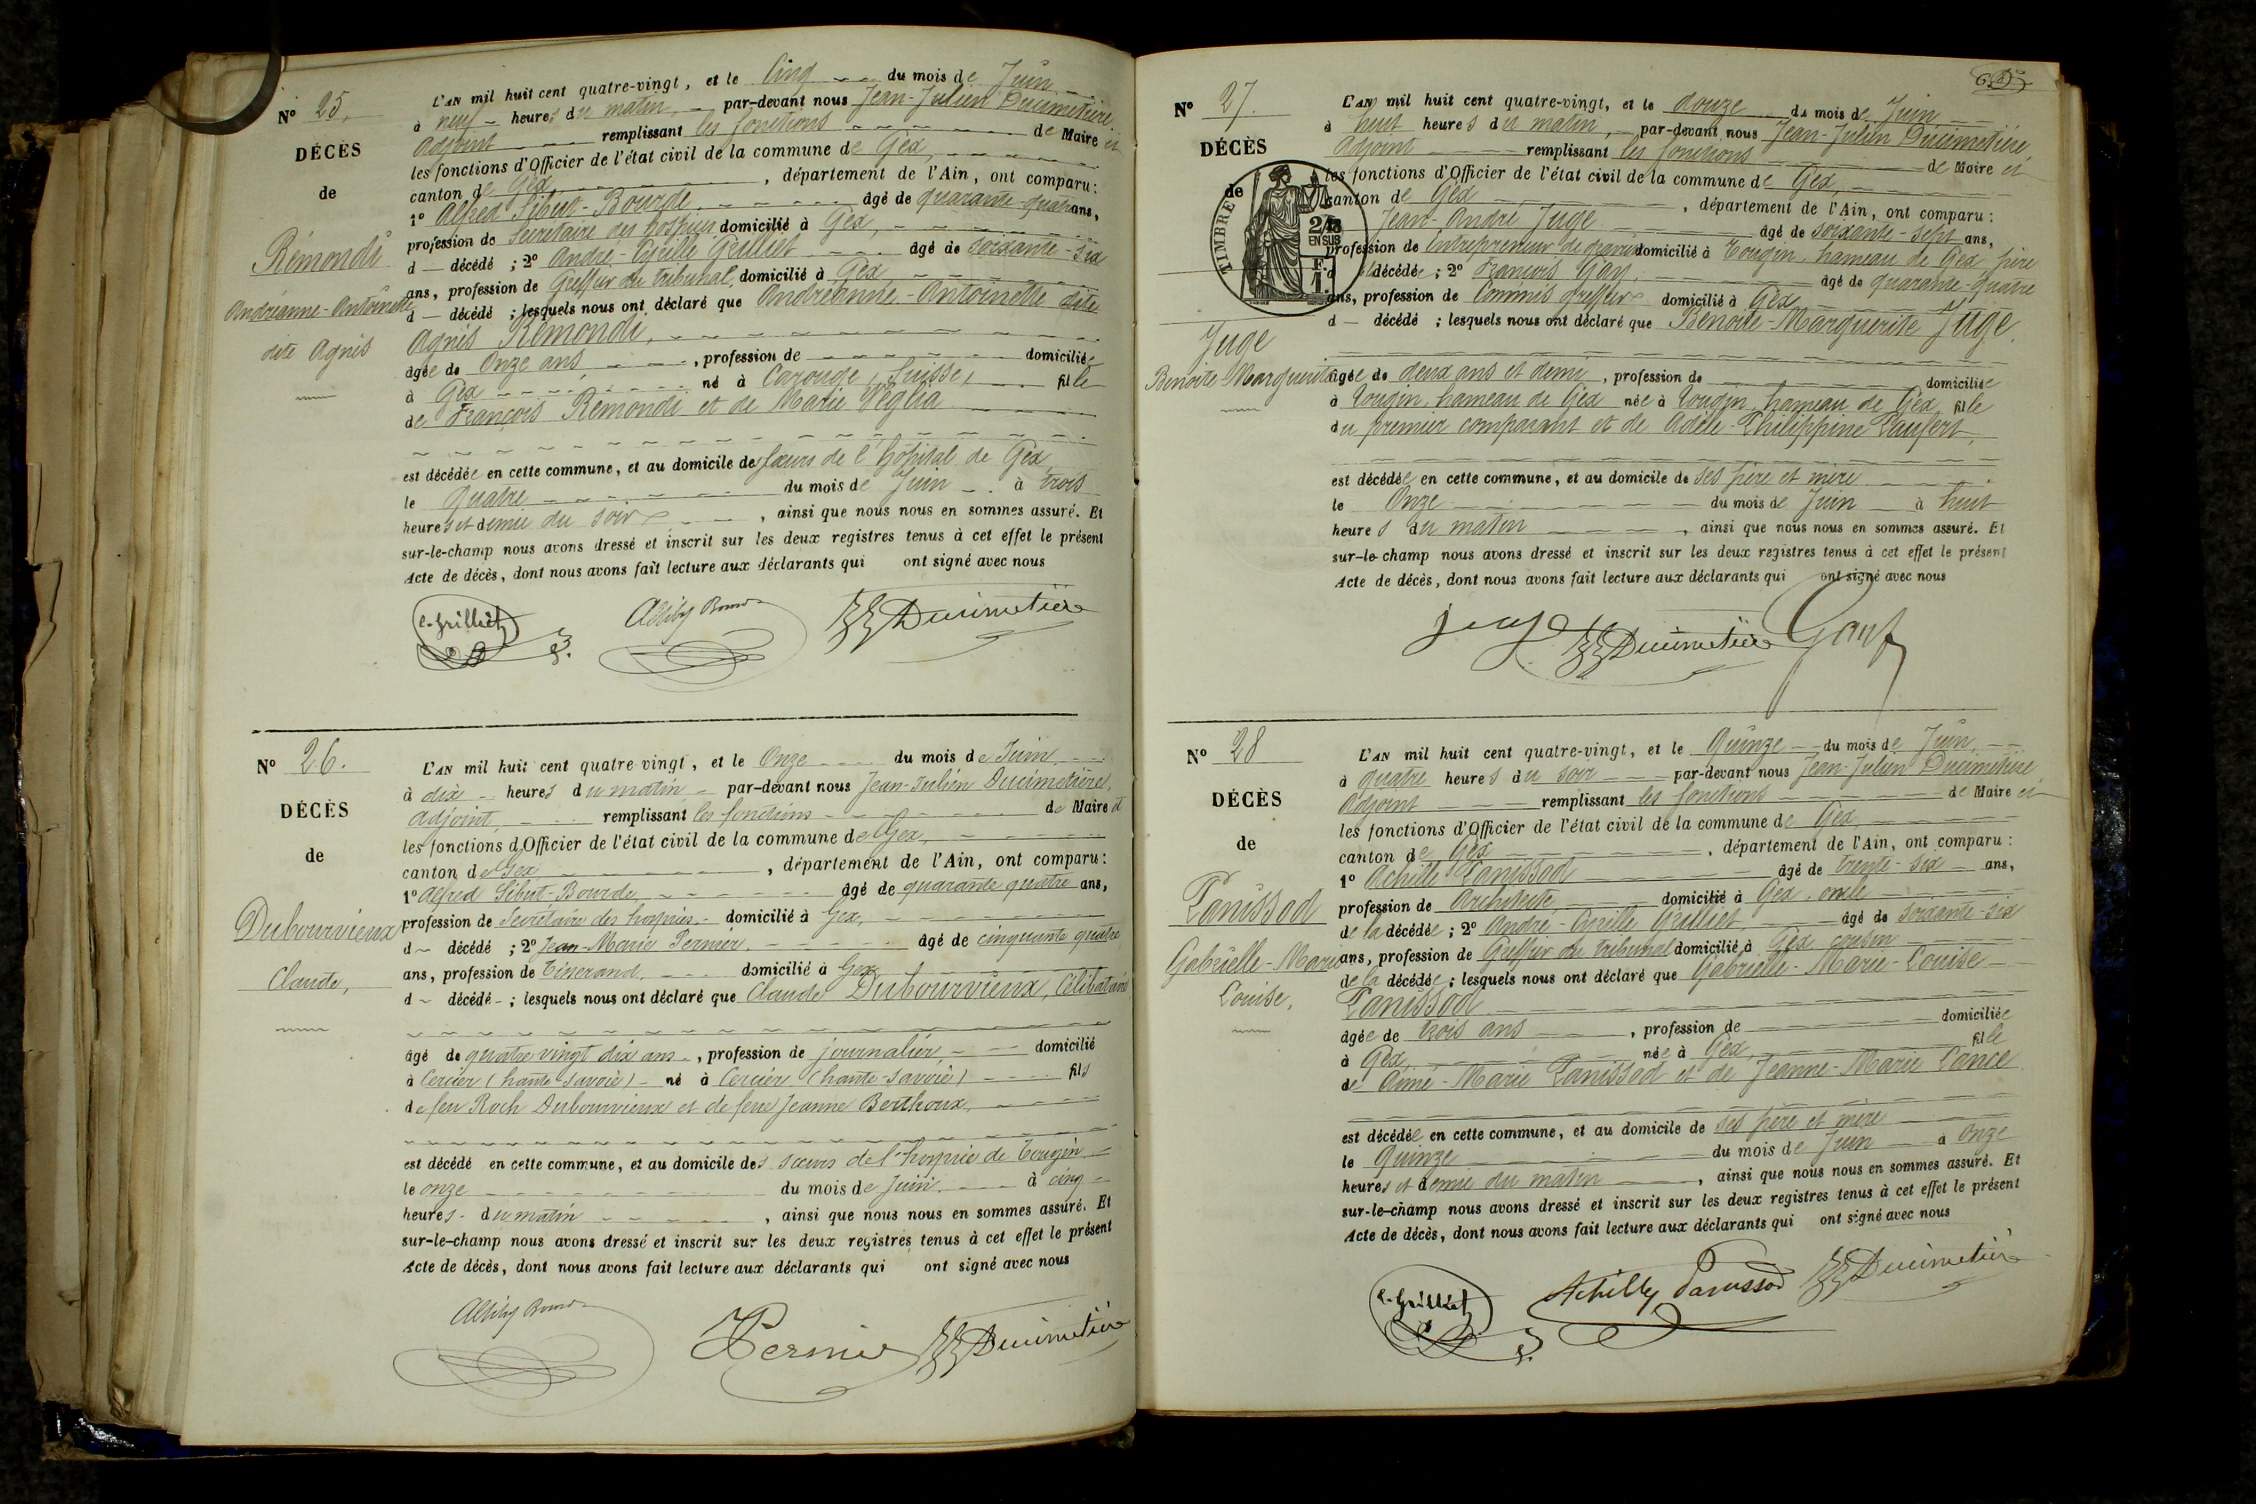 N° 25.
DÉCÈS
de
Rémondi
Andréanne-Antoinette
dite Agnès
L'AN mil huit cent quatre-vingt, et le Cinq du mois de Juin
à neuf heures du matin, par-devant nous Jean-Julien Ducimetière
Adjoint remplissant les fonctions de Maire et
les fonctions d'Officier de l'état civil de la commune de Gex,
canton de Gex, département de l'Ain, ont comparu:
1° Alfred Sibut-Bourde, âgé de quarante-quatre ans,
profession de Secrétaire des hospices domicilié à Gex,
d — décédé ; 2° André-Cyrille Grilliet âgé de soixante-six
ans, profession de Greffier du tribunal, domicilié à Gex
d — décédé ; lesquels nous ont déclaré que Andréanne-Antoinette dite
Agnès Rémondi,
âgée de Onze ans, profession de domiciliée
à Gex né à Carouge (Suisse) fille
de François Rémondi et de Marie Veglia
est décédée en cette commune, et au domicile des sœurs de l'hôpital de Gex
le Quatre du mois de Juin à trois
heures et demie du soir, ainsi que nous nous en sommes assuré. Et
sur-le-champ nous avons dressé et inscrit sur les deux registres tenus à cet effet le présent
Acte de décès, dont nous avons fait lecture aux déclarants qui ont signé avec nous
C. Grilliet ASibut Bourde Ducimetière
N° 26.
DÉCÈS
de
Dubourvieux
Claude,
L'AN mil huit cent quatre-vingt, et le Onze du mois de Juin
à dix heures du matin par-devant nous Jean-Julien Ducimetière,
adjoint, remplissant les fonctions de Maire et
les fonctions d'Officier de l'état civil de la commune de Gex,
canton de Gex, département de l'Ain, ont comparu:
1° Alfred Sibut-Bourde, âgé de quarante quatre ans,
profession de Secrétaire des hospices domicilié à Gex,
d ~ décédé ; 2° Jean-Marie Pernier, âgé de cinquante quatre
ans, profession de Tisserand, domicilié à Gex
d ~ décédé ; lesquels nous ont déclaré que Claude Dubourvieux, Célibataire
âgé de quatre vingt dix ans, profession de journalier, domicilié
à Cercier (haute-savoie) né à Cercier (haute-savoie) fils
de feu Roch Dubourvieux et de feue Jeanne Berthoux,
est décédé en cette commune, et au domicile des sœurs de l'hospice de Tougin
le onze du mois de Juin à cinq
heures du matin, ainsi que nous nous en sommes assuré. Et
sur-le-champ nous avons dressé et inscrit sur les deux registres tenus à cet effet le présent
Acte de décès, dont nous avons fait lecture aux déclarants qui ont signé avec nous
ASibut Bourde Pernier Ducimetière
N° 27.
DÉCÈS
de
TIMBRE
EN SUS
Juge
Benoite Marguerite
L'AN mil huit cent quatre-vingt, et le douze du mois de Juin
à huit heures du matin, par-devant nous Jean-Julien Ducimetière,
Adjoint remplissant les fonctions de Maire et
les fonctions d'Officier de l'état civil de la commune de Gex,
canton de Gex, département de l'Ain, ont comparu:
Jean-André Juge âgé de soixante-sept ans,
profession de Entrepreneur de domicilié à Tougin, hameau de Gex père
décédée ; 2° François Gay, âgé de quarante-quatre
ans, profession de Commis greffier domicilié à Gex
d — décédé ; lesquels nous ont déclaré que Benoite-Marguerite Juge,
âgée de deux ans et demi, profession de domiciliée
à Tougin, hameau de Gex née à Tougin, hameau de Gex fille
du premier comparant et de Adèle-Philippine
est décédée en cette commune, et au domicile de ses père et mère
le Onze du mois de Juin à huit
heures du matin, ainsi que nous nous en sommes assuré. Et
sur-le-champ nous avons dressé et inscrit sur les deux registres tenus à cet effet le présent
Acte de décès, dont nous avons fait lecture aux déclarants qui ont signé avec nous
juge Ducimetière Gay
N° 28
DÉCÈS
de
Panissod
Gabrielle-Marie
Louise,
L'AN mil huit cent quatre-vingt, et le Quinze du mois de Juin,
à quatre heures du soir par-devant nous Jean-Julien Ducimetière,
Adjoint remplissant les fonctions de Maire et
les fonctions d'Officier de l'état civil de la commune de Gex
canton de Gex, département de l'Ain, ont comparu:
1° Achille Panissod âgé de trente-six ans,
profession de Architecte domicilié à Gex, oncle
de la décédée ; 2° André-Cyrille Grilliet, âgé de soixante-six
ans, profession de Greffier du tribunal domicilié à Gex cousin
de la décédée ; lesquels nous ont déclaré que Gabrielle-Marie-Louise
Panissod
âgée de trois ans, profession de domiciliée
à Gex née à Gex fille
de Aimé-Marie Panissod et de Jeanne-Marie Lance
est décédée en cette commune, et au domicile de ses père et mère
le Quinze du mois de Juin à Onze
heures et demie du matin, ainsi que nous nous en sommes assuré. Et
sur-le-champ nous avons dressé et inscrit sur les deux registres tenus à cet effet le présent
Acte de décès, dont nous avons fait lecture aux déclarants qui ont signé avec nous
C. Grilliet Achille Panissod Ducimetière